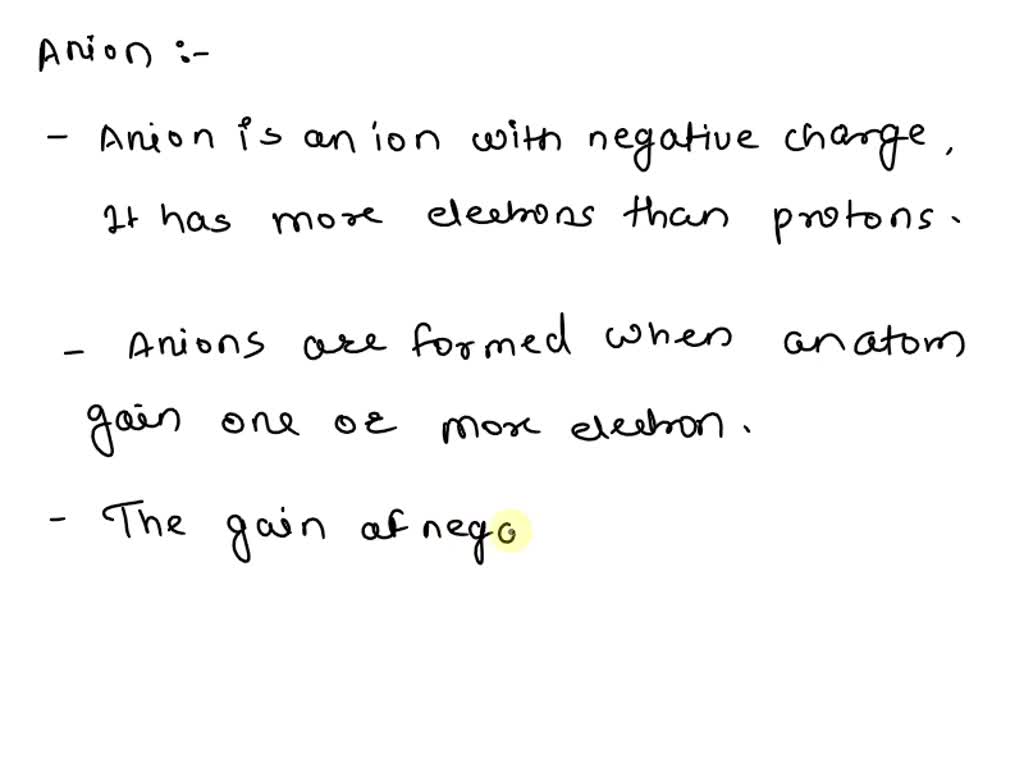 Anion :-
- Anion is an ion with negative charge,
It has more electrons than protons.
- Anions are formed when an atom
gain one or more electron.
- The gain of nega